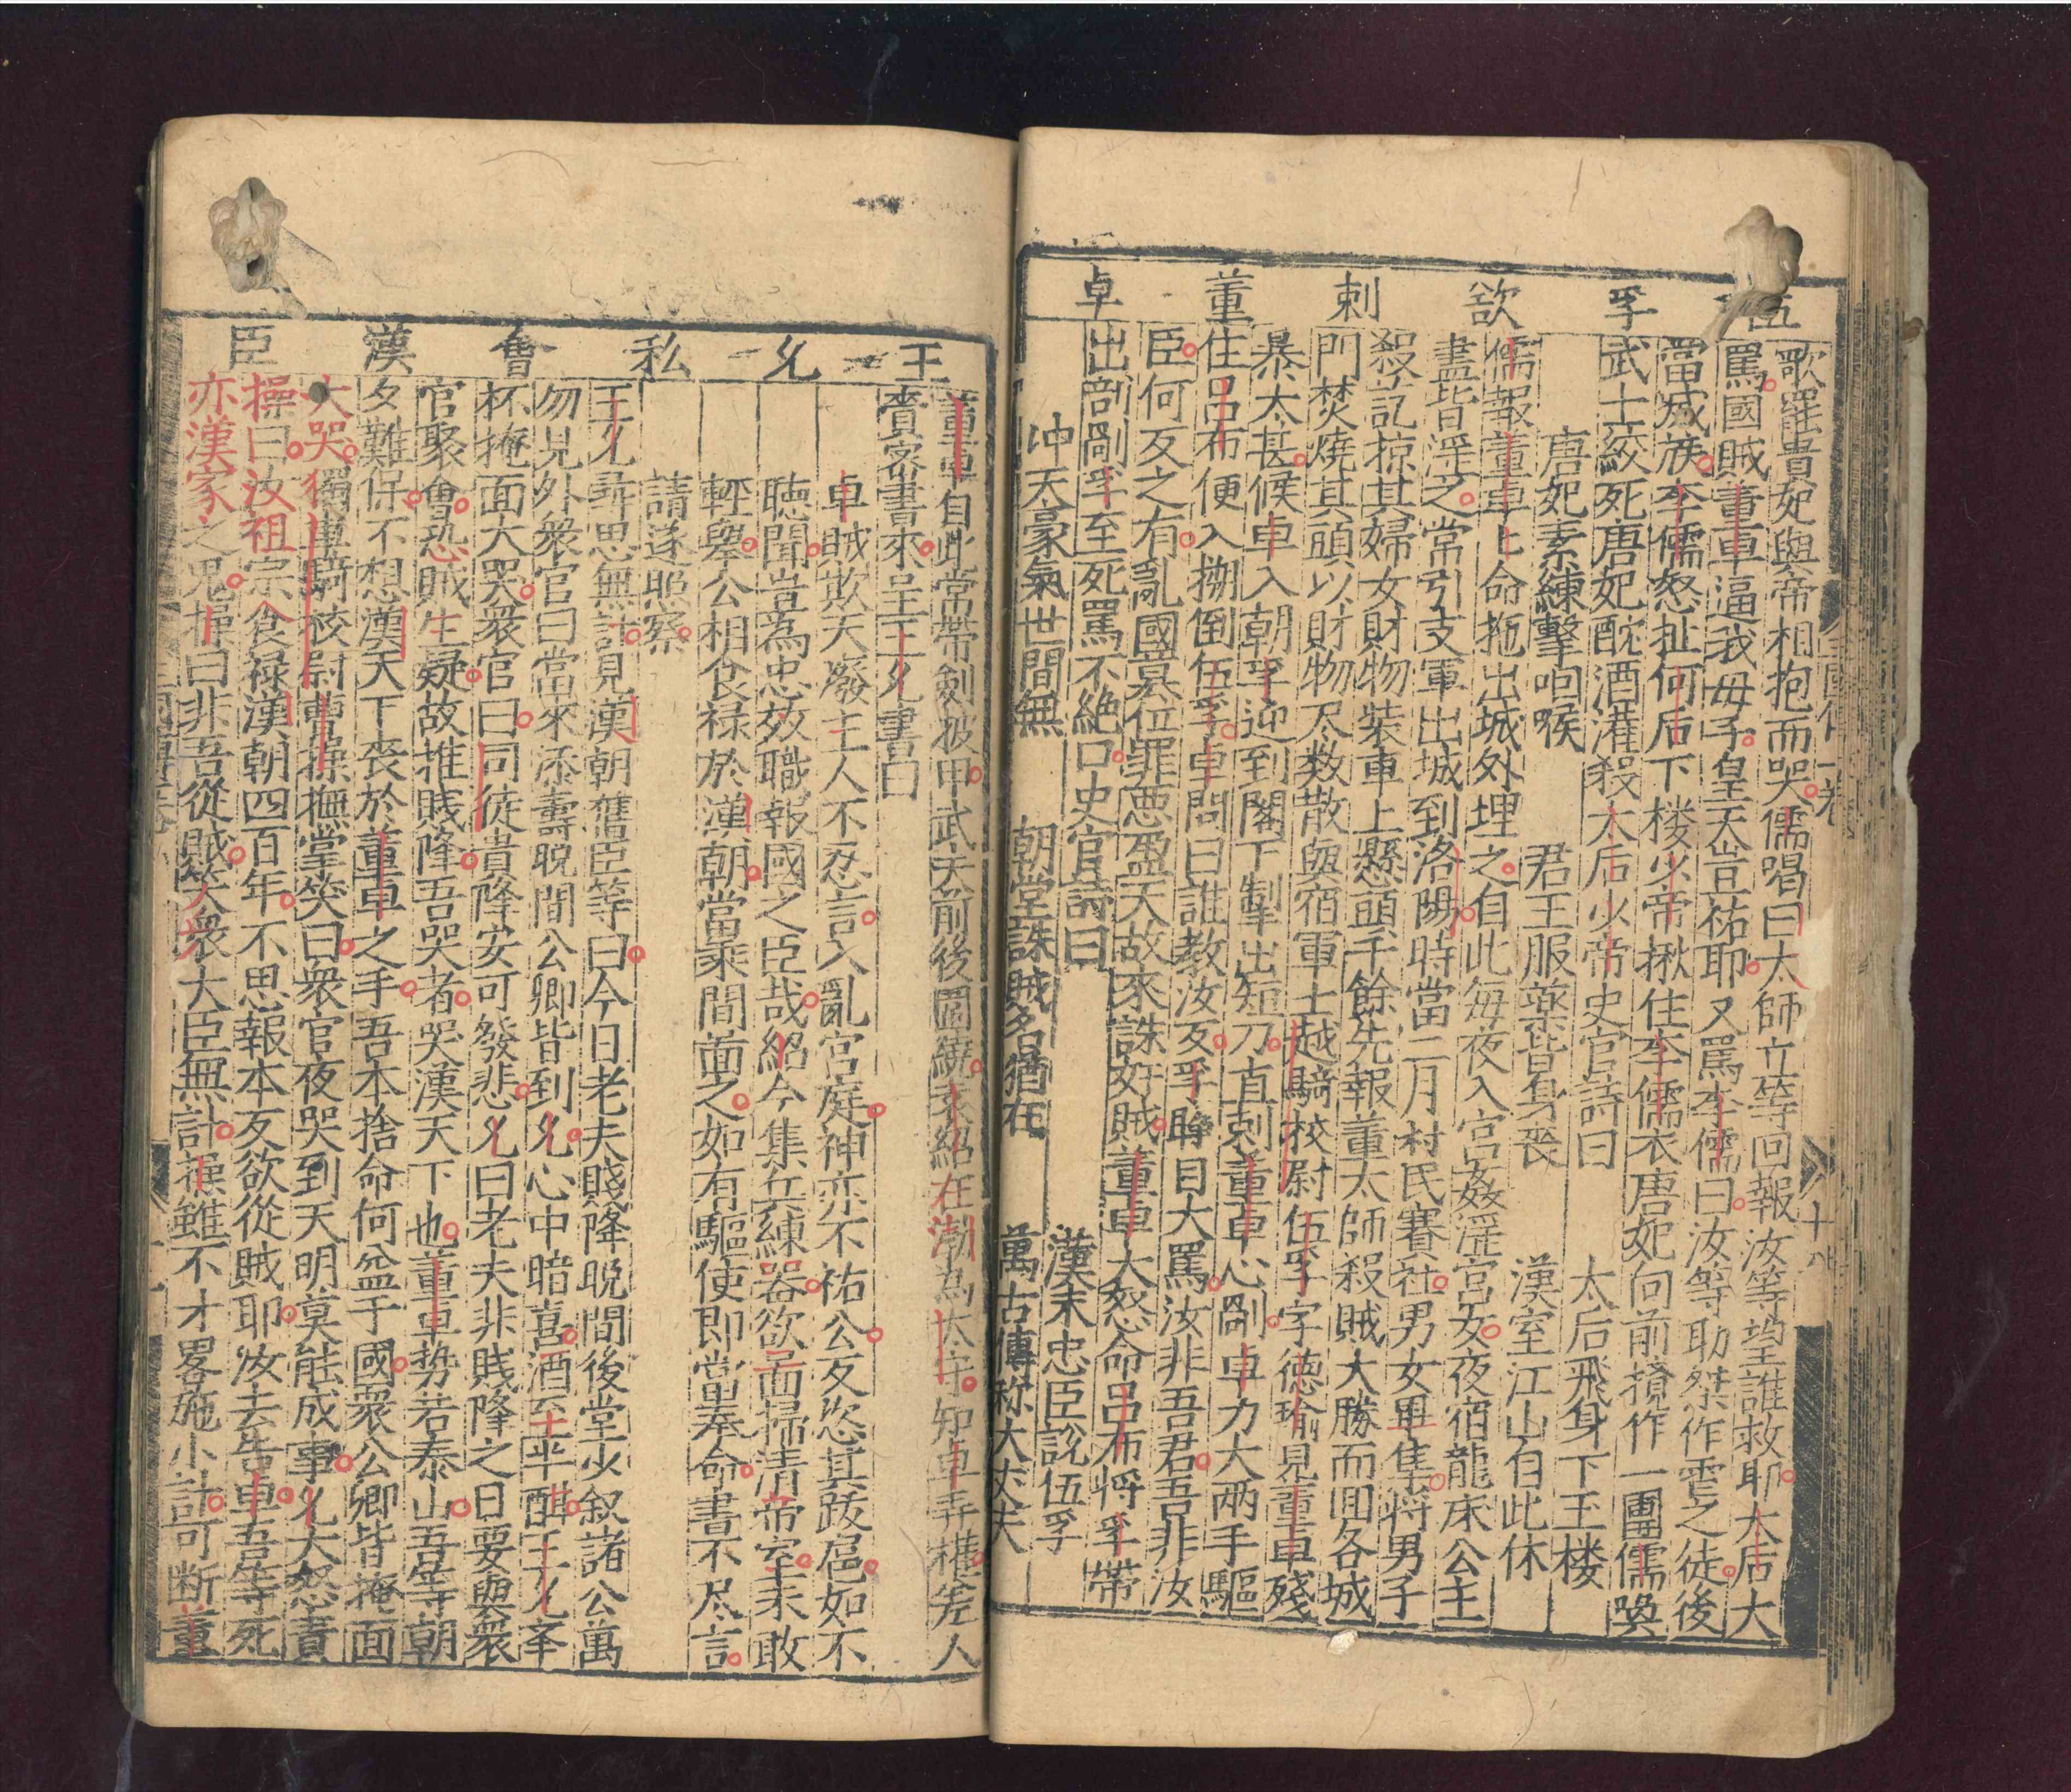 伍孚欲刺董卓
歌罷貴妃與帝相抱而哭儒唱曰太師立等回報汝等望誰救耶太后大
罵國賊董卓逼我母子皇天豈祐耶又罵李儒曰汝等助桀作虐之徒後
當滅族李儒怒扯何后下楼少帝揪住李儒衣唐妃向前攙作一團儒喚
武士絞死唐妃酖酒灌殺太后少帝史官詩曰 太后飛身下玉楼
唐妃素練擊咽喉 君王服藥皆身喪 漢室江山自此休
儒報董卓卓命拖出城外埋之自此每夜入宮姦淫宮女夜宿龍床公主
盡皆淫之常引支軍出城到洛陽時當二月村民賽社男女畢集将男子
殺訖掠其婦女財物装車上懸頭千餘先報董太師殺賊大勝而囬各城
門焚燒其頭以財物尽数散與宿軍士越騎校尉伍孚字德瑜見董卓殘
暴太甚候卓入朝孚迎到閣下掣出短刀直刺董卓心剮卓力大両手驅
住吕布便入捌倒伍孚卓問曰誰教汝反孚睜目大罵汝非吾君吾非汝
臣何反之有亂國篡位罪惡盈天故來誅奸賊董卓大怒命吕布将孚帶
出剖剮孚至死罵不絶口史官詩曰 漢末忠臣說伍孚
冲天豪氣世間無 朝堂誅賊名猶在 萬古傳称大丈夫
三國傳一卷 十八
王允私會漢臣
董卓自此常帶劍披甲武夫前後圍繞袁紹在渤海為太守知卓弄權差人
賫密書來呈王允書曰
卓賊欺天廢主人不忍言入亂宮庭神亦不祐公反恣其跋扈如不
聴聞豈為忠效職報國之臣哉紹今集兵練器欲而掃清帝室未敢
輕舉公相食禄於漢朝當乘間啚之如有驅使即當奉命書不尽言
請遂照察
王允尋思無計見漢朝舊臣等曰今日老夫賤降晩間後堂少叙諸公萬
勿見外衆官曰當來添壽晩間公卿皆到允心中暗喜酒至半酣王允奉
杯掩面大哭衆官曰司徒貴降安可發悲允曰老夫非賤降之日要與衆
官聚會恐賊生疑故推賤降吾哭者哭漢天下也董卓势若泰山吾等朝
夕難保不想漢天下喪於董卓之手吾本捨命何益于國衆公卿皆掩面
大哭獨驍騎校尉曹操撫掌笑曰衆官夜哭到天明莫能成事允大怒責
操曰汝祖宗食禄漢朝四百年不思報本反欲從賊耶汝去告卓吾等死
亦漢家之鬼操曰非吾從賊笑衆大臣無計操雖不才畧施小計可断董